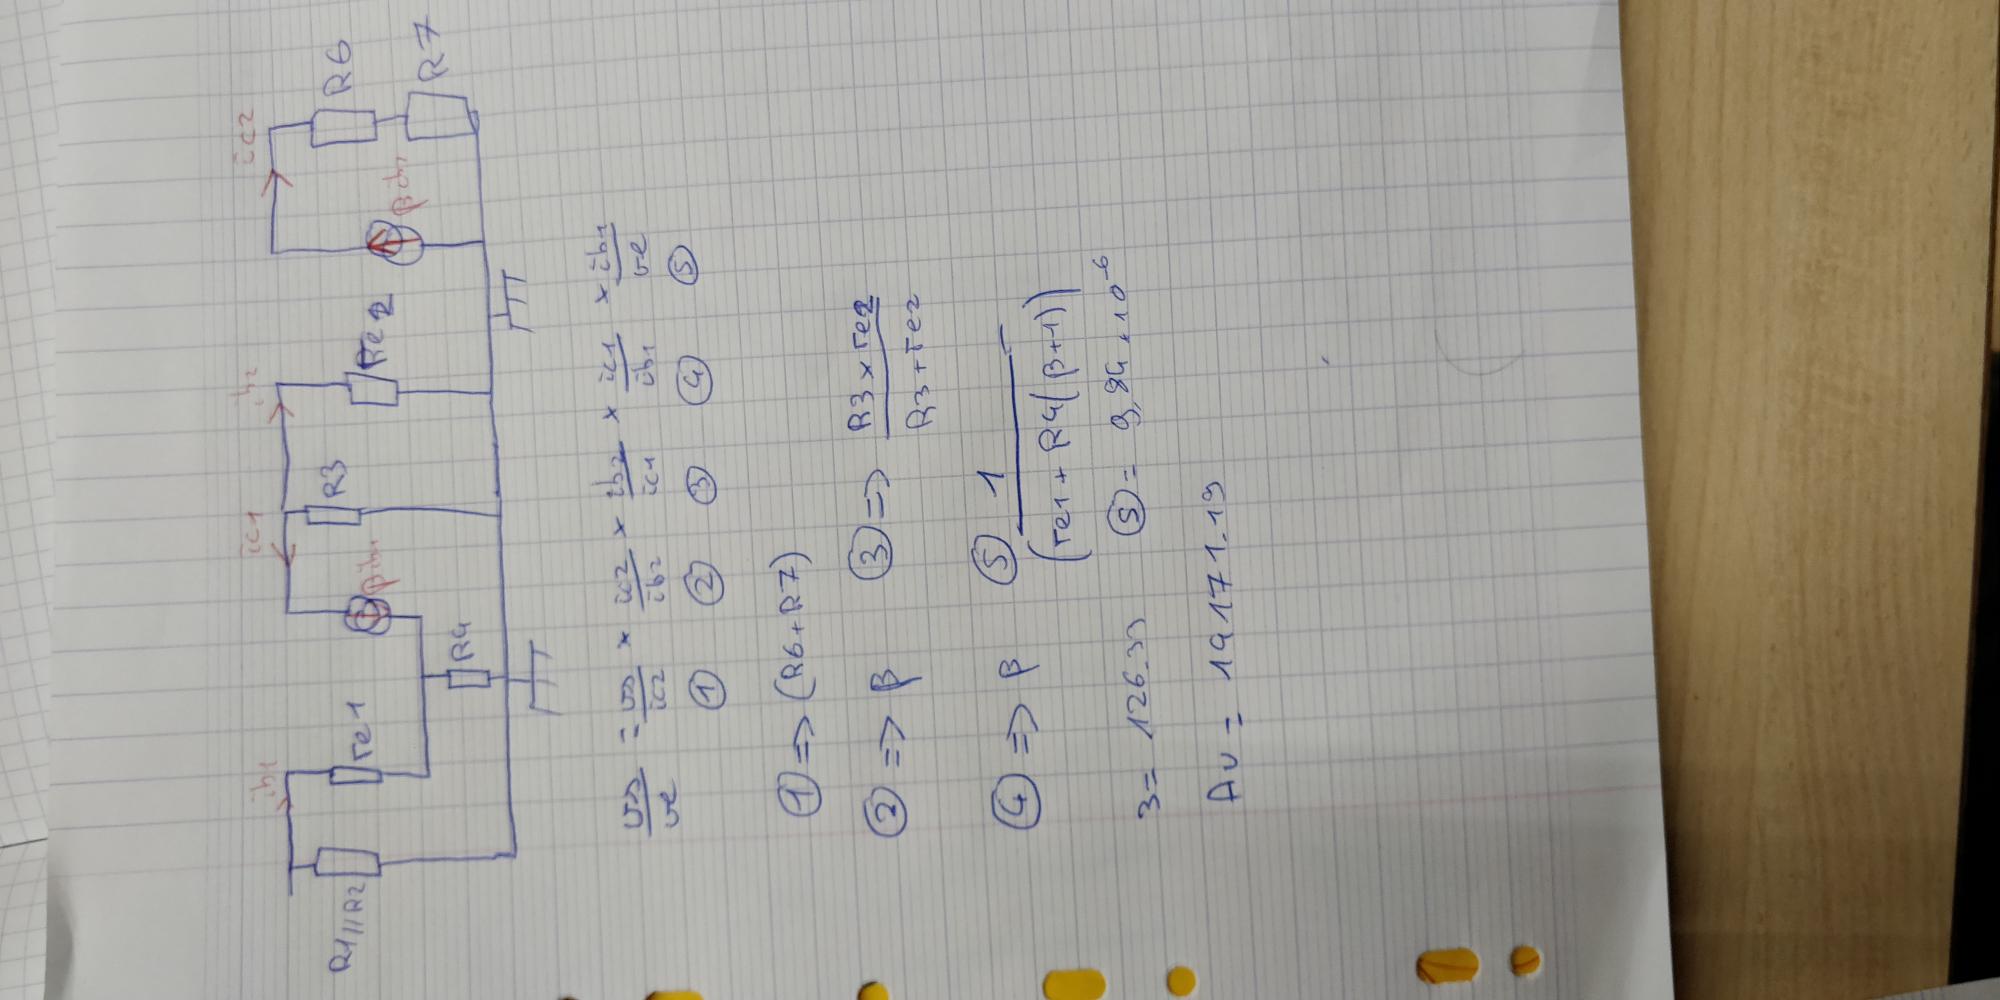 ib1 ic1 ib2 ic2
R1//R2 re1 βib1 R3 re2 R6
R4 R7
vs/ve = vs/ic2 × ic2/ib2 × ib2/ic1 × ic1/ib1 × ib1/ve
① ② ③ ④ ⑤
① => (R6+R7)
② => β ③ => R3 × re2 / R3 + re2
④ => β ⑤ 1 / (re1 + R4(β+1))
3 = 126.33 ⑤ = 9,84.10⁻⁶
Av = 19171.19